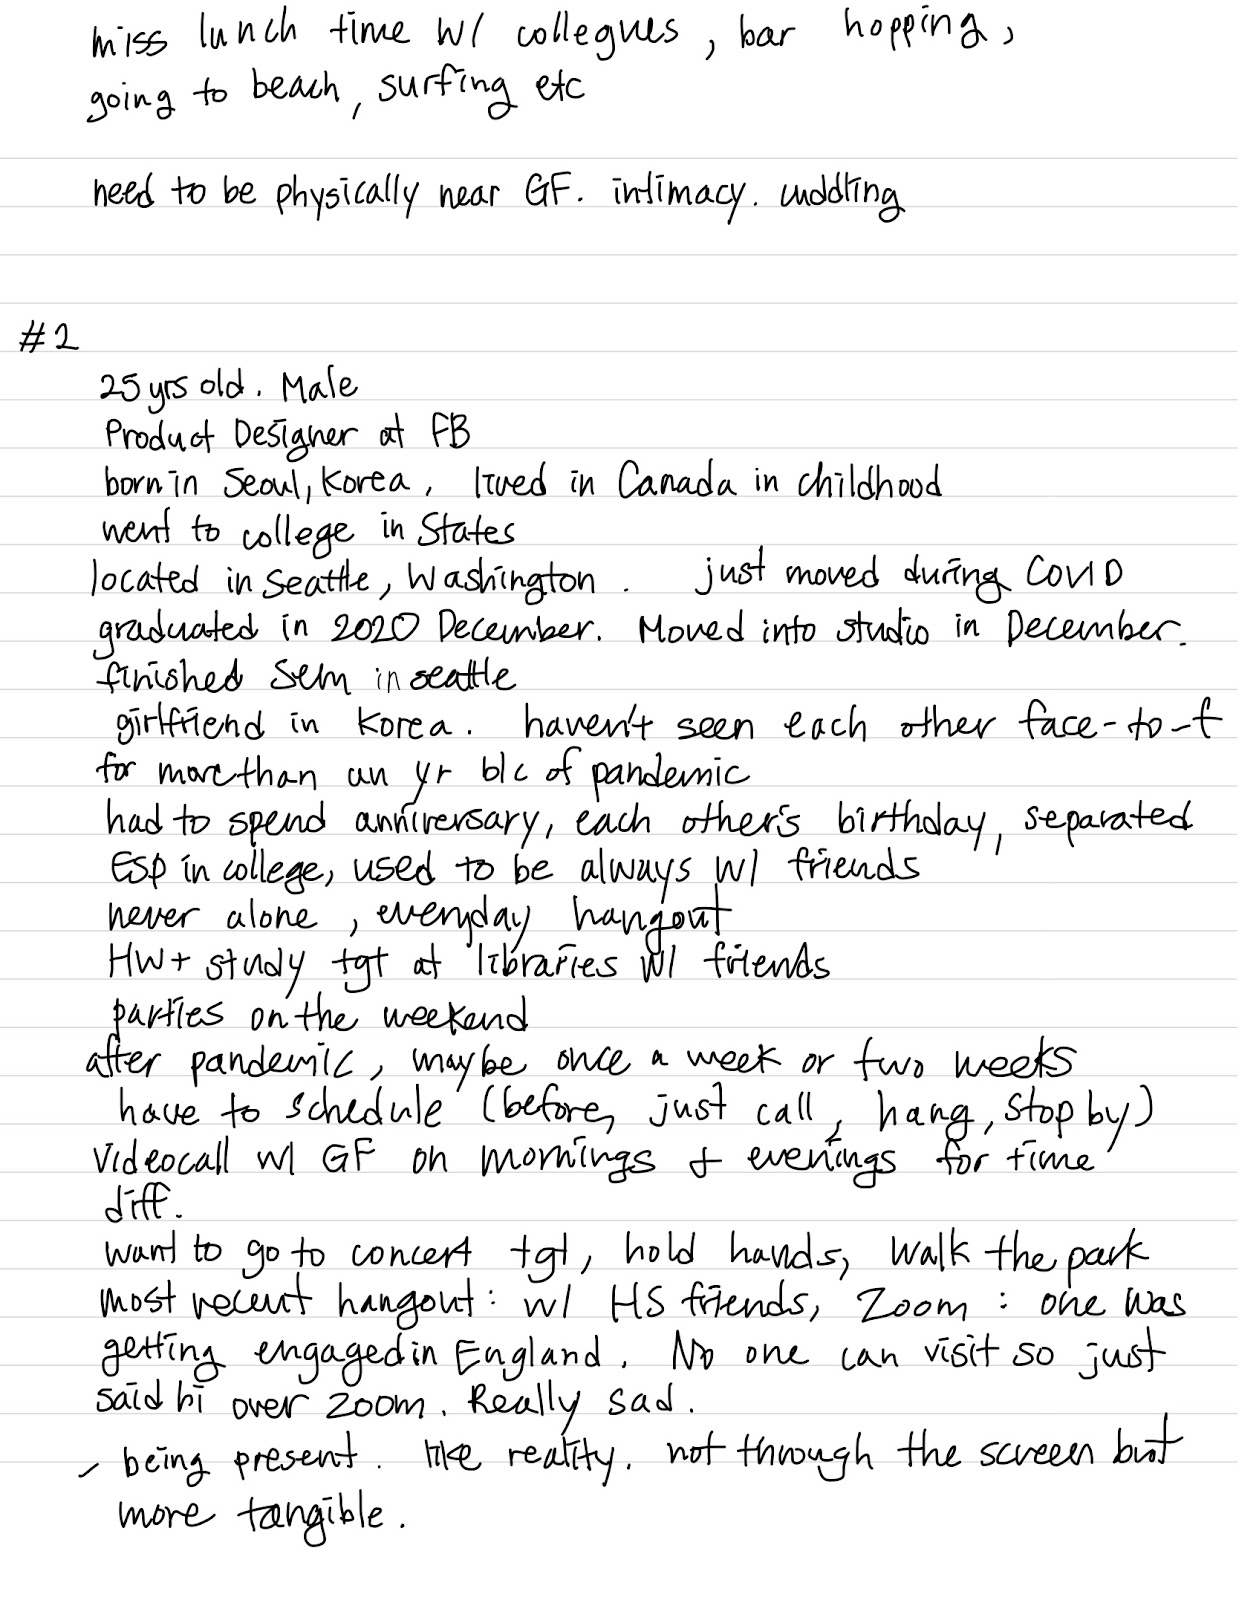 miss lunch time w/ collegues, bar hopping,
going to beach, surfing etc
need to be physically near GF. intimacy. cuddling
#2
25 yrs old. Male
Product Designer at FB
born in Seoul, Korea, lived in Canada in childhood
went to college in States
located in Seattle, Washington. just moved during COVID
graduated in 2020 December. Moved into studio in December.
finished sem in seattle
girlfriend in Korea. haven't seen each other face-to-f
for more than an yr b/c of pandemic
had to spend anniversary, each other's birthday, separated
Esp in college, used to be always w/ friends
never alone, everyday hangout
HW+ study tgt at libraries w/ friends
parties on the weekend
after pandemic, maybe once a week or two weeks
have to schedule (before, just call, hang, stop by)
Videocall w/ GF on mornings & evenings for time
diff.
want to go to concert tgt, hold hands, walk the park
most recent hangout: w/ HS friends, Zoom: one was
getting engaged in England. No one can visit so just
said hi over zoom. Really sad.
- being present. like reality. not through the screen but
more tangible.